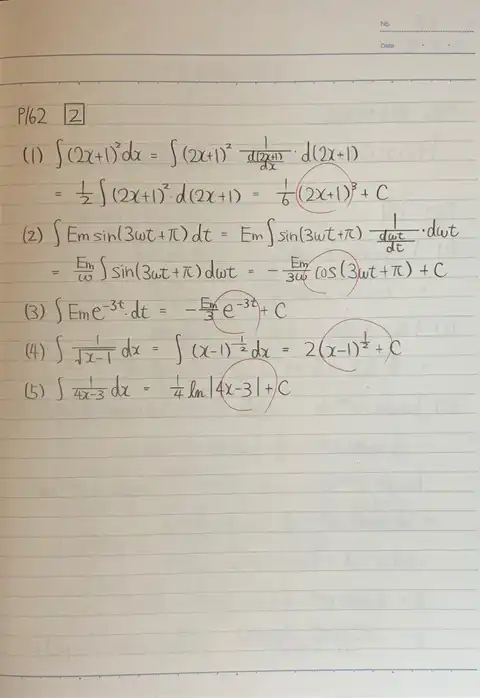 No.
Date
P162 [2]
(1) ∫(2x+1)²dx = ∫(2x+1)² 1/(d(2x+1)/dx) · d(2x+1)
= 1/2 ∫(2x+1)² · d(2x+1) = 1/6 (2x+1)³ + C
(2) ∫Em sin(3ωt+π)dt = Em∫sin(3ωt+π) 1/(dωt/dt) · dωt
= Em/ω ∫sin(3ωt+π)dωt = - Em/3ω cos(3ωt+π) + C
(3) ∫Em e^-3t · dt = - Em/3 e^-3t + C
(4) ∫ 1/√(x-1) dx = ∫ (x-1)^-1/2 dx = 2(x-1)^1/2 + C
(5) ∫ 1/(4x-3) dx = 1/4 ln|4x-3| + C